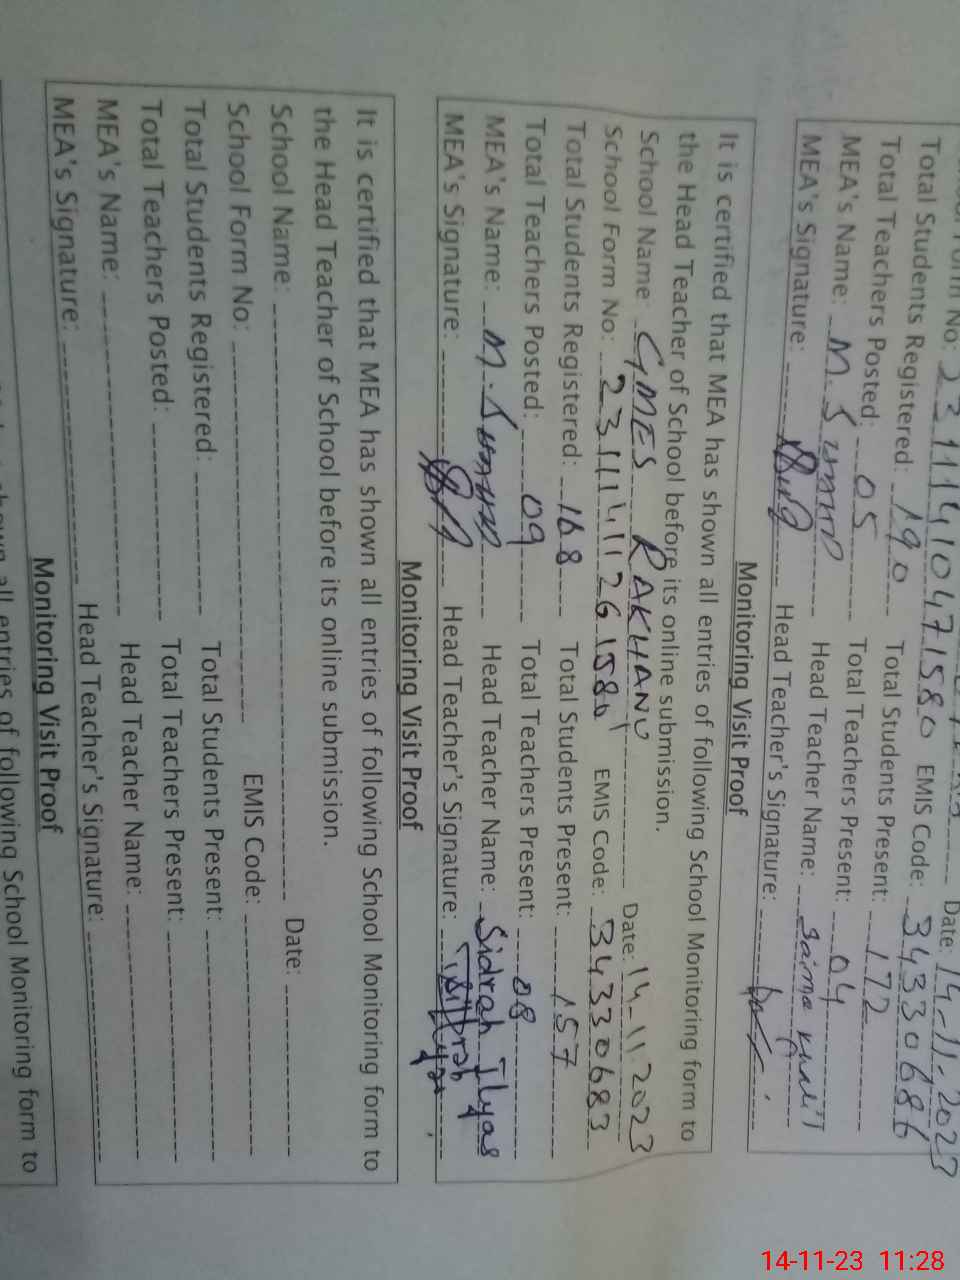 Form No: 23111410471580 EMIS Code: 34330686
Date: 14-11-2023
Total Students Registered: 190 Total Students Present: 172
Total Teachers Posted: 05 Total Teachers Present: 04
MEA's Name: M. Head Teacher Name: Saima
MEA's Signature: Head Teacher's Signature:
Monitoring Visit Proof
It is certified that MEA has shown all entries of following School Monitoring form to
the Head Teacher of School before its online submission.
School Name: GMES RAKHANU Date: 14-11-2023
School Form No: 23111411261580 EMIS Code: 34330683
Total Students Registered: 168 Total Students Present: 157
Total Teachers Posted: 09 Total Teachers Present: 08
MEA's Name: M. Head Teacher Name: Sidrah Ilyas
MEA's Signature: Head Teacher's Signature: Sidrah Ilyas
Monitoring Visit Proof
It is certified that MEA has shown all entries of following School Monitoring form to
the Head Teacher of School before its online submission.
School Name: Date:
School Form No: EMIS Code:
Total Students Registered: Total Students Present:
Total Teachers Posted: Total Teachers Present:
MEA's Name: Head Teacher Name:
MEA's Signature: Head Teacher's Signature:
Monitoring Visit Proof
shown all entries of following School Monitoring form to
14-11-23 11:28